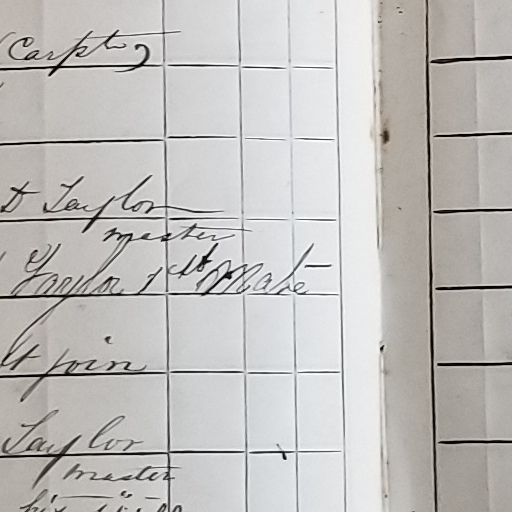 (Carptr)
D Taylor
master
Taylor 1st Mate
join
Taylor
master